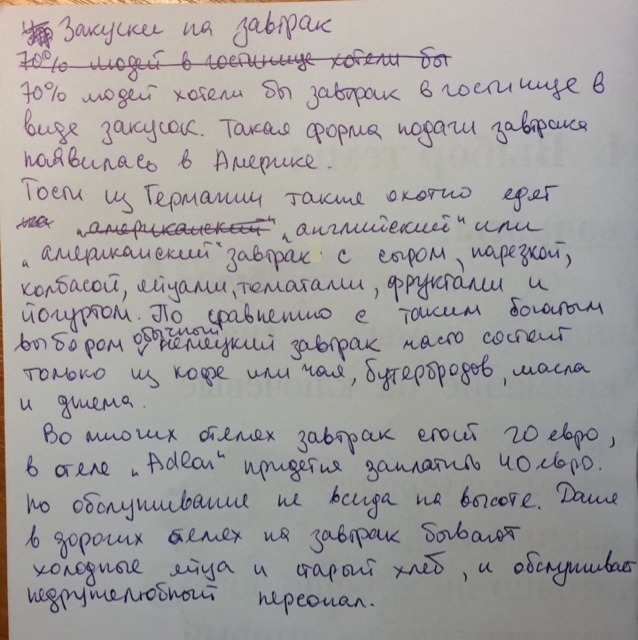 Закуски на завтрак
70% людей в гостинице хотели бы
70% людей хотели бы завтрак в гостинице в
виде закусок. Такая форма подачи завтрака
появилась в Америке.
Гости из Германии также охотно едят
на „американский" „английский" или
„американский" завтрак с сыром, нарезкой,
колбасой, яйцами, томатами, фруктами и
йогуртом. По сравнению с таким богатым
выбором обычный немецкий завтрак часто состоит
только из кофе или чая, бутербродов, масла
и джема.
Во многих отелях завтрак стоит 20 евро,
в отеле „Adlon" придется заплатить 40 евро.
Но обслуживание не всегда на высоте. Даже
в дорогих отелях на завтрак бывают
холодные яйца и старый хлеб, и обслуживает
недружелюбный персонал.